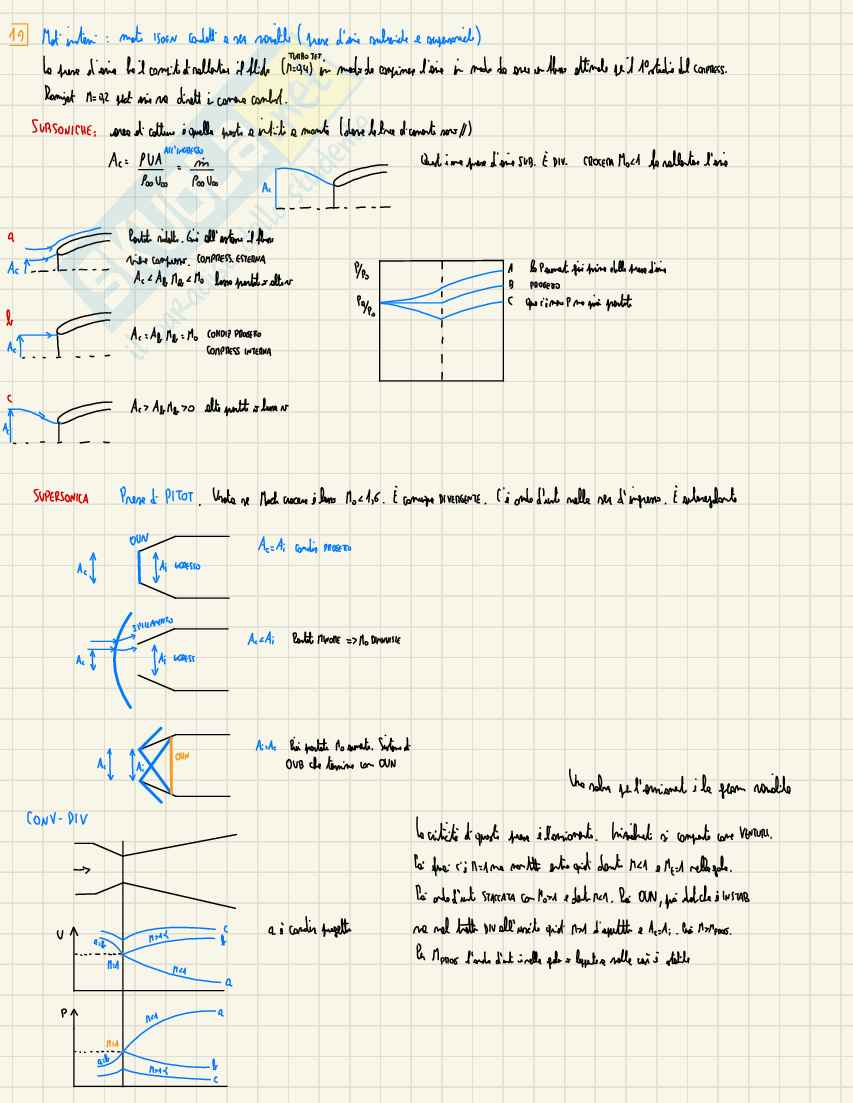 19 Moti interni : moto ISOEN condotti a sez variabile ( prese d'aria subsoniche e supersoniche)
La presa d'aria ha il compito di rallentare il fluido (M=0,4) in modo da l'aria in modo da avere un flusso ottimale per il 1° stadio del COMPRESS.
TURBO JET
Ramjet M=0,2 poi aria va diretta in camera combust.
SUBSONICHE: area di cattura è quella posta a infinito a monte (dove le linee d corrente sono //)
ALL'INGRESSO
Ac = ρUA / ρ∞ U∞ = ṁ / ρ∞ U∞
Ac
Quindi una presa d'aria SUB. È DIV. CROCIERA M0<1 fa rallentare l'aria
a
Ac
Portata ridotta. Già all'esterno il flusso
viene compresso. COMPRESS. ESTERNA
Ac < A M < M0 bassa portata o alta v
b
Ac
Ac = A M = M0 CONDIZ PROGETTO
COMPRESS INTERNA
c
Ac
Ac > A M >0 alta portata o bassa v
P/P0
P0/P0
A la P aument già prima della presa d'aria
B PROGETTO
C qui c'è meno P ma più portata
SUPERSONICA Presa di PITOT. Usata se Mach crociera è basso M0<1,6. È comunque DIVERGENTE. C'è onda d'urto nella sez d'ingresso. È autoregolante
OUN
Ac
Ai INGRESSO
Ac=Ai condiz PROGETTO
SPILLAMENTO
Ac
Ai INGRESS
Ac<Ai Portata MINORE => M0 DIMINUISCE
Ac
Ai
OUN
Ai=Ac Più portata M0 aumenta. Sistema di
OUB che termina con OUN
Una salva per l'avviament è la geom variabile
CONV-DIV
La criticità di queste prese è l'avviamento. Inizialmente si comporta come VENTURI.
Poi fuori c'è M=1 ma entra quindi davanti M<1 e M=1 nella gola.
Poi onda d'urto STACCATA con M0>1 e dietro M<1. Poi OUN, poi dal che è INSTAB
va nel tratto DIV all'uscita quindi M>1 d'appertutto e Ac=Ai. Poi M>MPROG.
Per MPROG l'onda d'urto è nella gola o leggete a valle così è stabile
V
a÷b
M=1
M>1
M<1
c
b
a
a è condiz progetto
P
a÷b
M=1
M<1
M>1
a
b
c